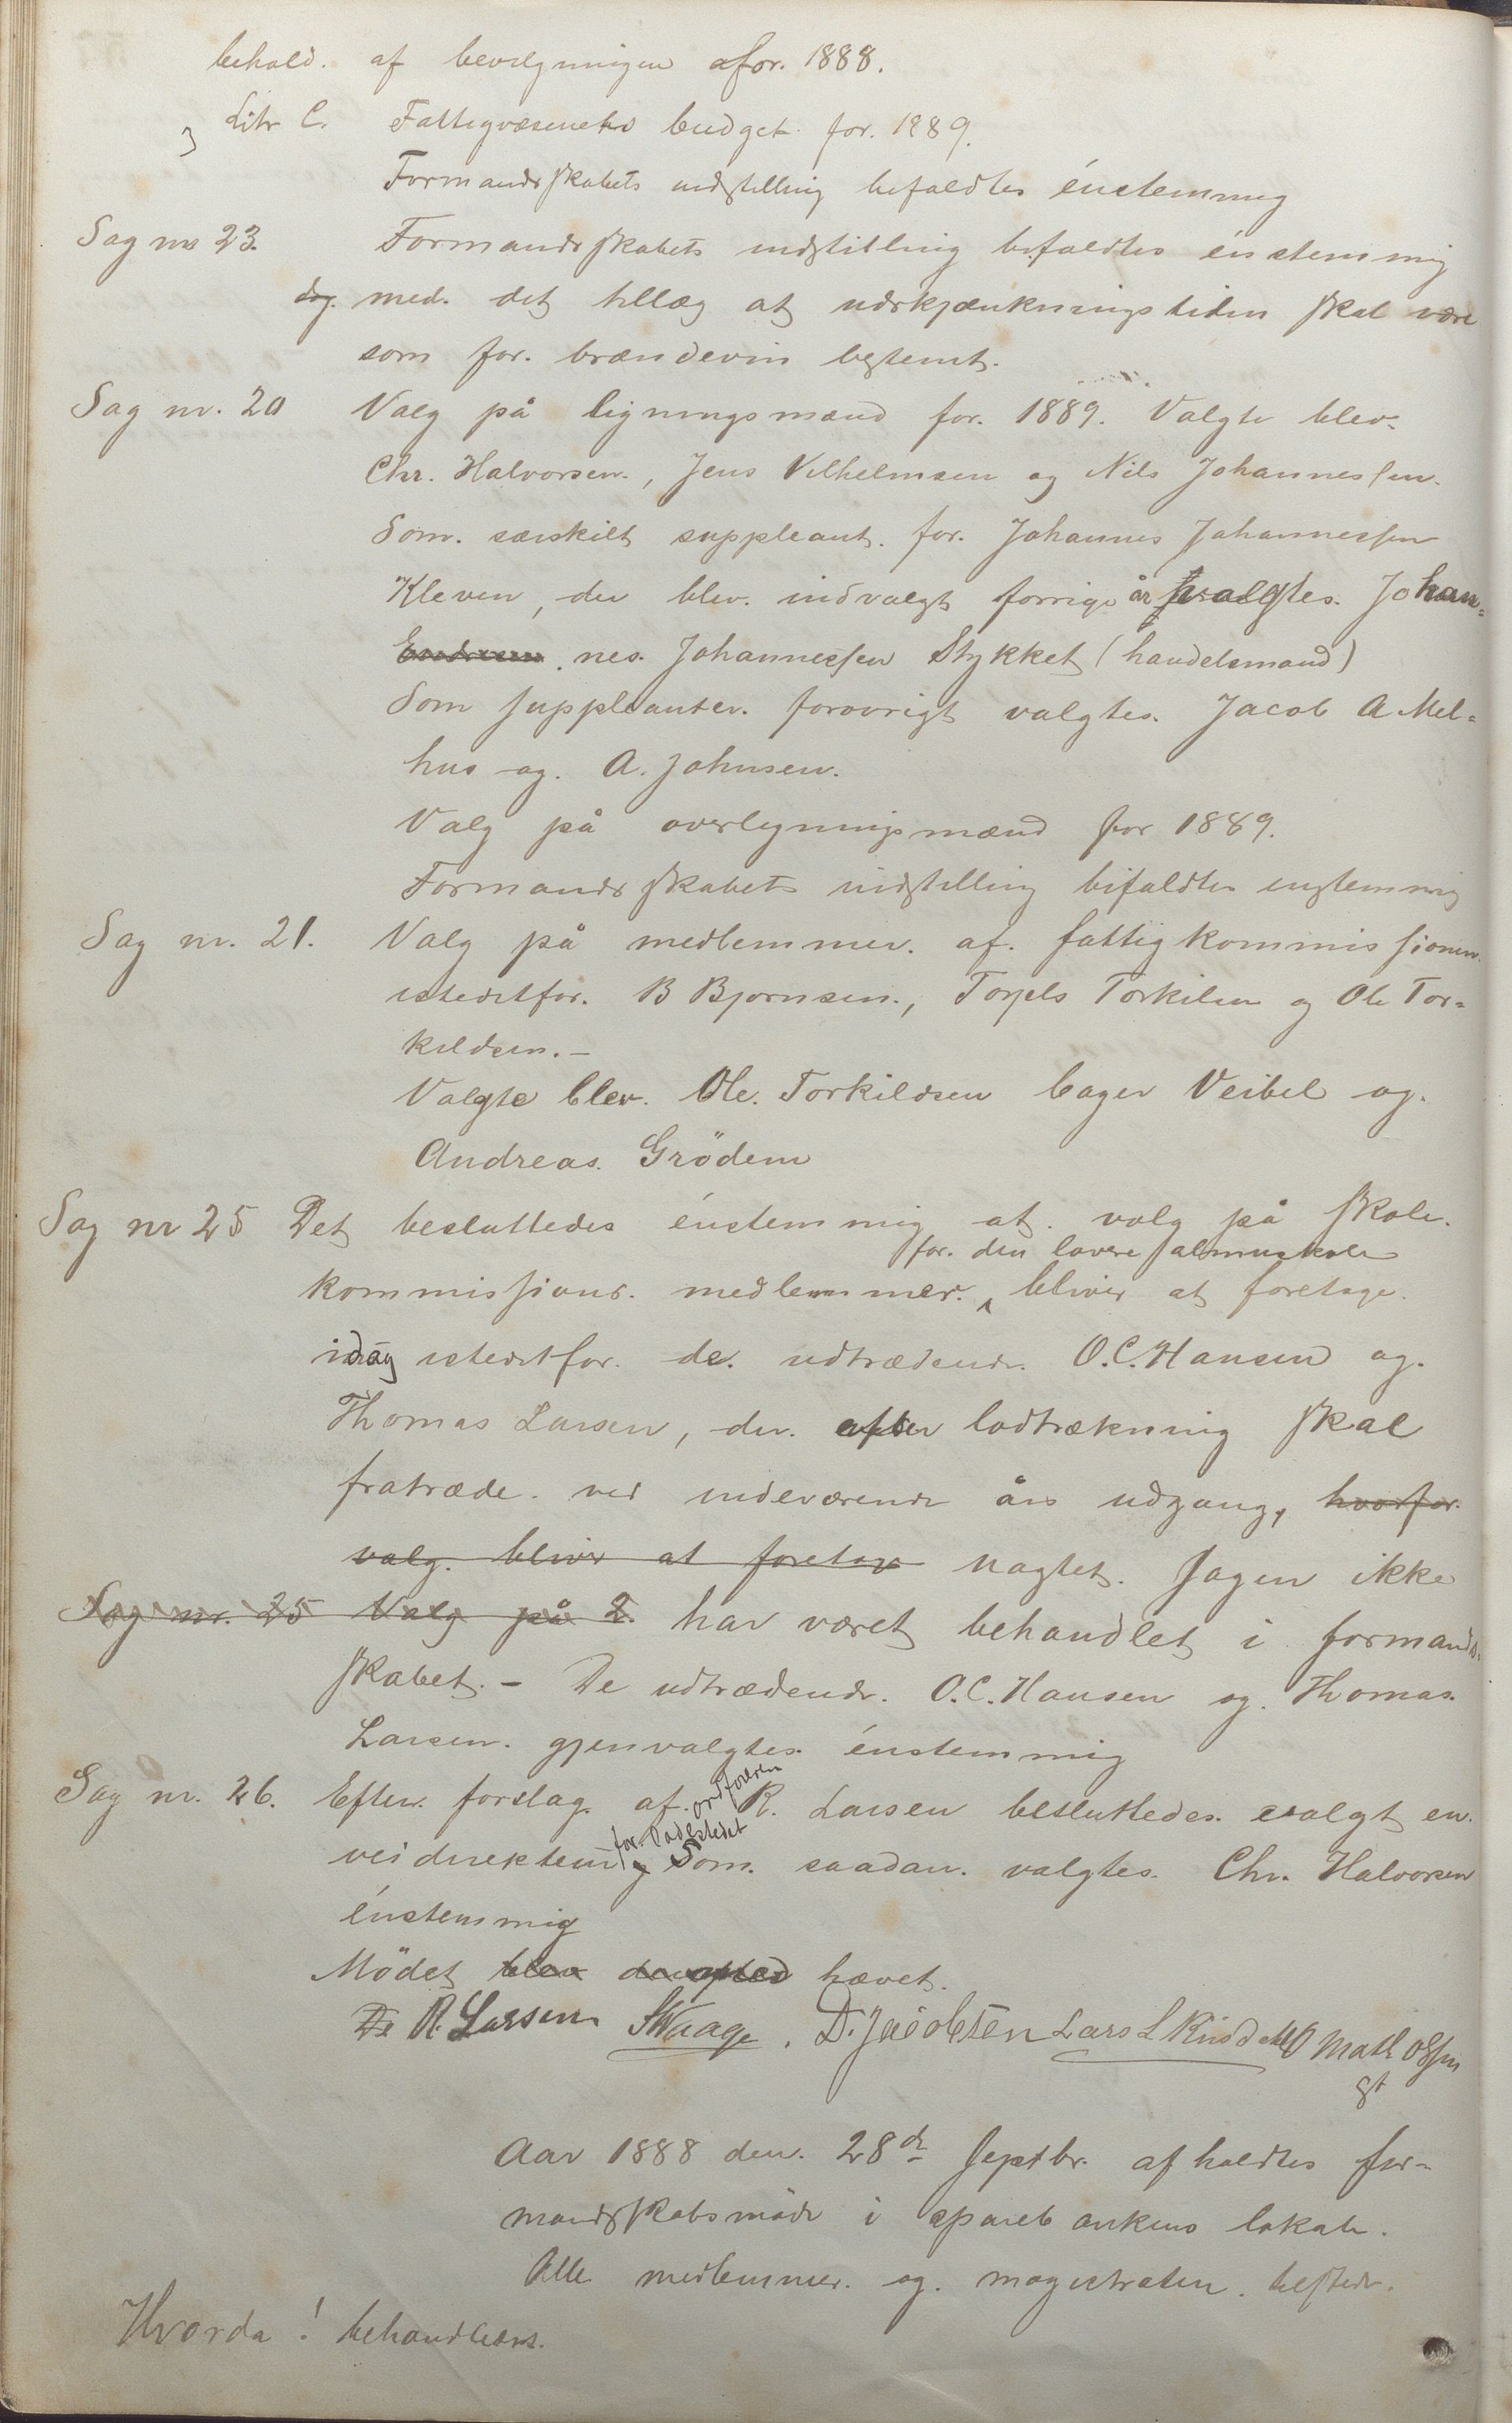 behold. af bevilgningen afor. 1888.
Litr C. Fattigvæsenets budget for. 1889.
Formandsskabets indstilling bifaldtes énstemmig
Sag nr 23. Formandsskabets indstilling bifaldtes énstemmig
dog. med. det tillæg at udskjænkningstiden skal være
som for. brændevin bestemt.
Sag nr. 20 Valg på ligningsmænd for. 1889. Valgte blev.
Chr. Halvorsen., Jens Vilhelmsen og Nils Johannessen.
Som. særskilt suppleant. for. Johannes Johannessen
Kleven, der blev. indvalgt forrige år valgtes. Johan=
nes. Johannessen Stykket (handelsmand)
Som suppleanter. forøvrigt valgtes. Jacob A Mel=
hus og. A. Johnsen.
Valg på overligningsmænd for 1889.
Formandsskabets indstilling bifaldtes enstemmig
Sag nr. 21. Valg på medlemmer. af. fattigkommissionen.
istedetfor. B Bjornsen., Torjels Torkilsen og Ole Tor=
kildsen.–
Valgte blev. Ole. Torkildsen bager Veibel og.
Andreas. Grödem
Sag nr 25 Det besluttedes énstemmig at. valg på skole.
for. den lavere almueskole
kommissions. medlemmer. bliver at foretage.
idag istedetfor. de. udtrædende. O.C. Hansen og.
Thomas Larsen, der. efter lodtrækning skal
fratræde. ved indeværende års udgang, hvorfor.
valg. bliver at foretage uagtet. sagen ikke
Sag nr. 25 Valg på 2. har været behandlet i formands.
skabet. – De udtrædende. O.C. Hansen og. Thomas.
Larsen. gjenvalgtes énstemmig
Sag nr. 26. Efter. forslag. af. ordføreren R. Larsen besluttedes. valgt en.
for. Ladestedet
veidirekteur og Som. saadan. valgtes. Chr. Halvorsen
énstemmig
Mödet blev derefter hævet.
De R. Larsen SWaage. D. Jacobsen Lars L Math Olsen
Aar 1888 den. 28de Septbr. afholdtes for=
mandsskabsmöde i sparebankens lokale.
Alle medlemmer. og. magistraten. tilstede.
Hvorda! behandledes.